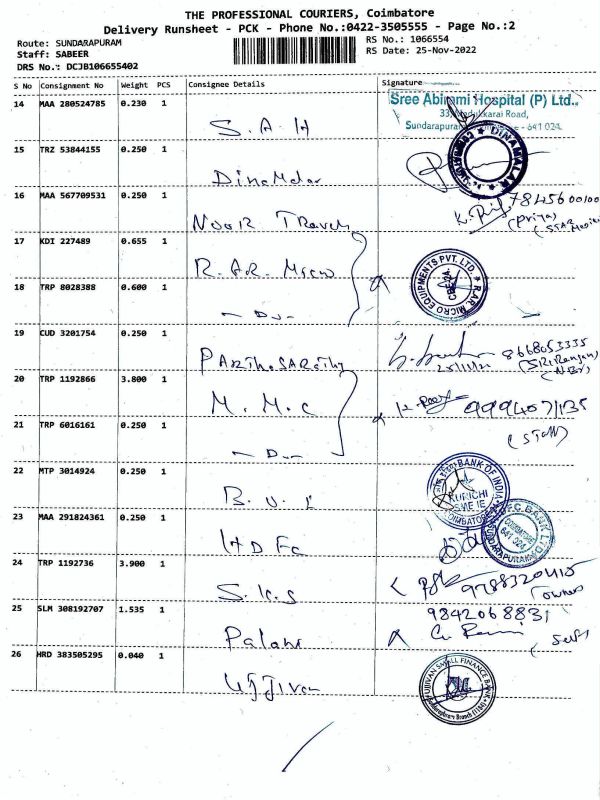 THE PROFESSIONAL COURIERS, Coimbatore
Delivery Runsheet - PCK - Phone No.:0422-3505555 - Page No.:2
Route: SUNDARAPURAM
RS No.: 1066554
Staff: SABEER
RS Date: 25-Nov-2022
DRS No.: DCJB106655402
S No Consignment No Weight PCS Consignee Details Signature
14 MAA 280524785 0.230 1
S.A.H
Sree Abirami Hospital (P) Ltd.,
Sundarapuram, Coimbatore - 641 024.
15 TRZ 53844155 0.250 1
Dinamalar
DINAMALAR
16 MAA 567709531 0.250 1
NOOR Travels
7845600100
(Priya)
17 KDI 227489 0.655 1
R.AR. Micro
R.A.R. MICRO EQUIPMENTS PVT. LTD.
CBE-24
18 TRP 8028388 0.600 1
- Do -
19 CUD 3201754 0.250 1
PARTHASARATHY
8668053335
25/11/22
20 TRP 1192866 3.800 1
M.M.C
9994071135
21 TRP 6016161 0.250 1
- Do -
(STAFF)
22 MTP 3014924 0.250 1
B.O.I
BANK OF INDIA
KURICHI
SME IE
COIMBATORE
23 MAA 291824361 0.250 1
HDFC
H.D.F.C. BANK LTD.
COIMBATORE
641 024
SUNDARAPURAM
24 TRP 1192736 3.900 1
S.K.S
9788320415
(owner
25 SLM 308192707 1.535 1
Palani
9842068831
(Self)
26 HRD 383505295 0.040 1
Ujjivan
UJJIVAN SMALL FINANCE BANK
Sundarapuram Branch